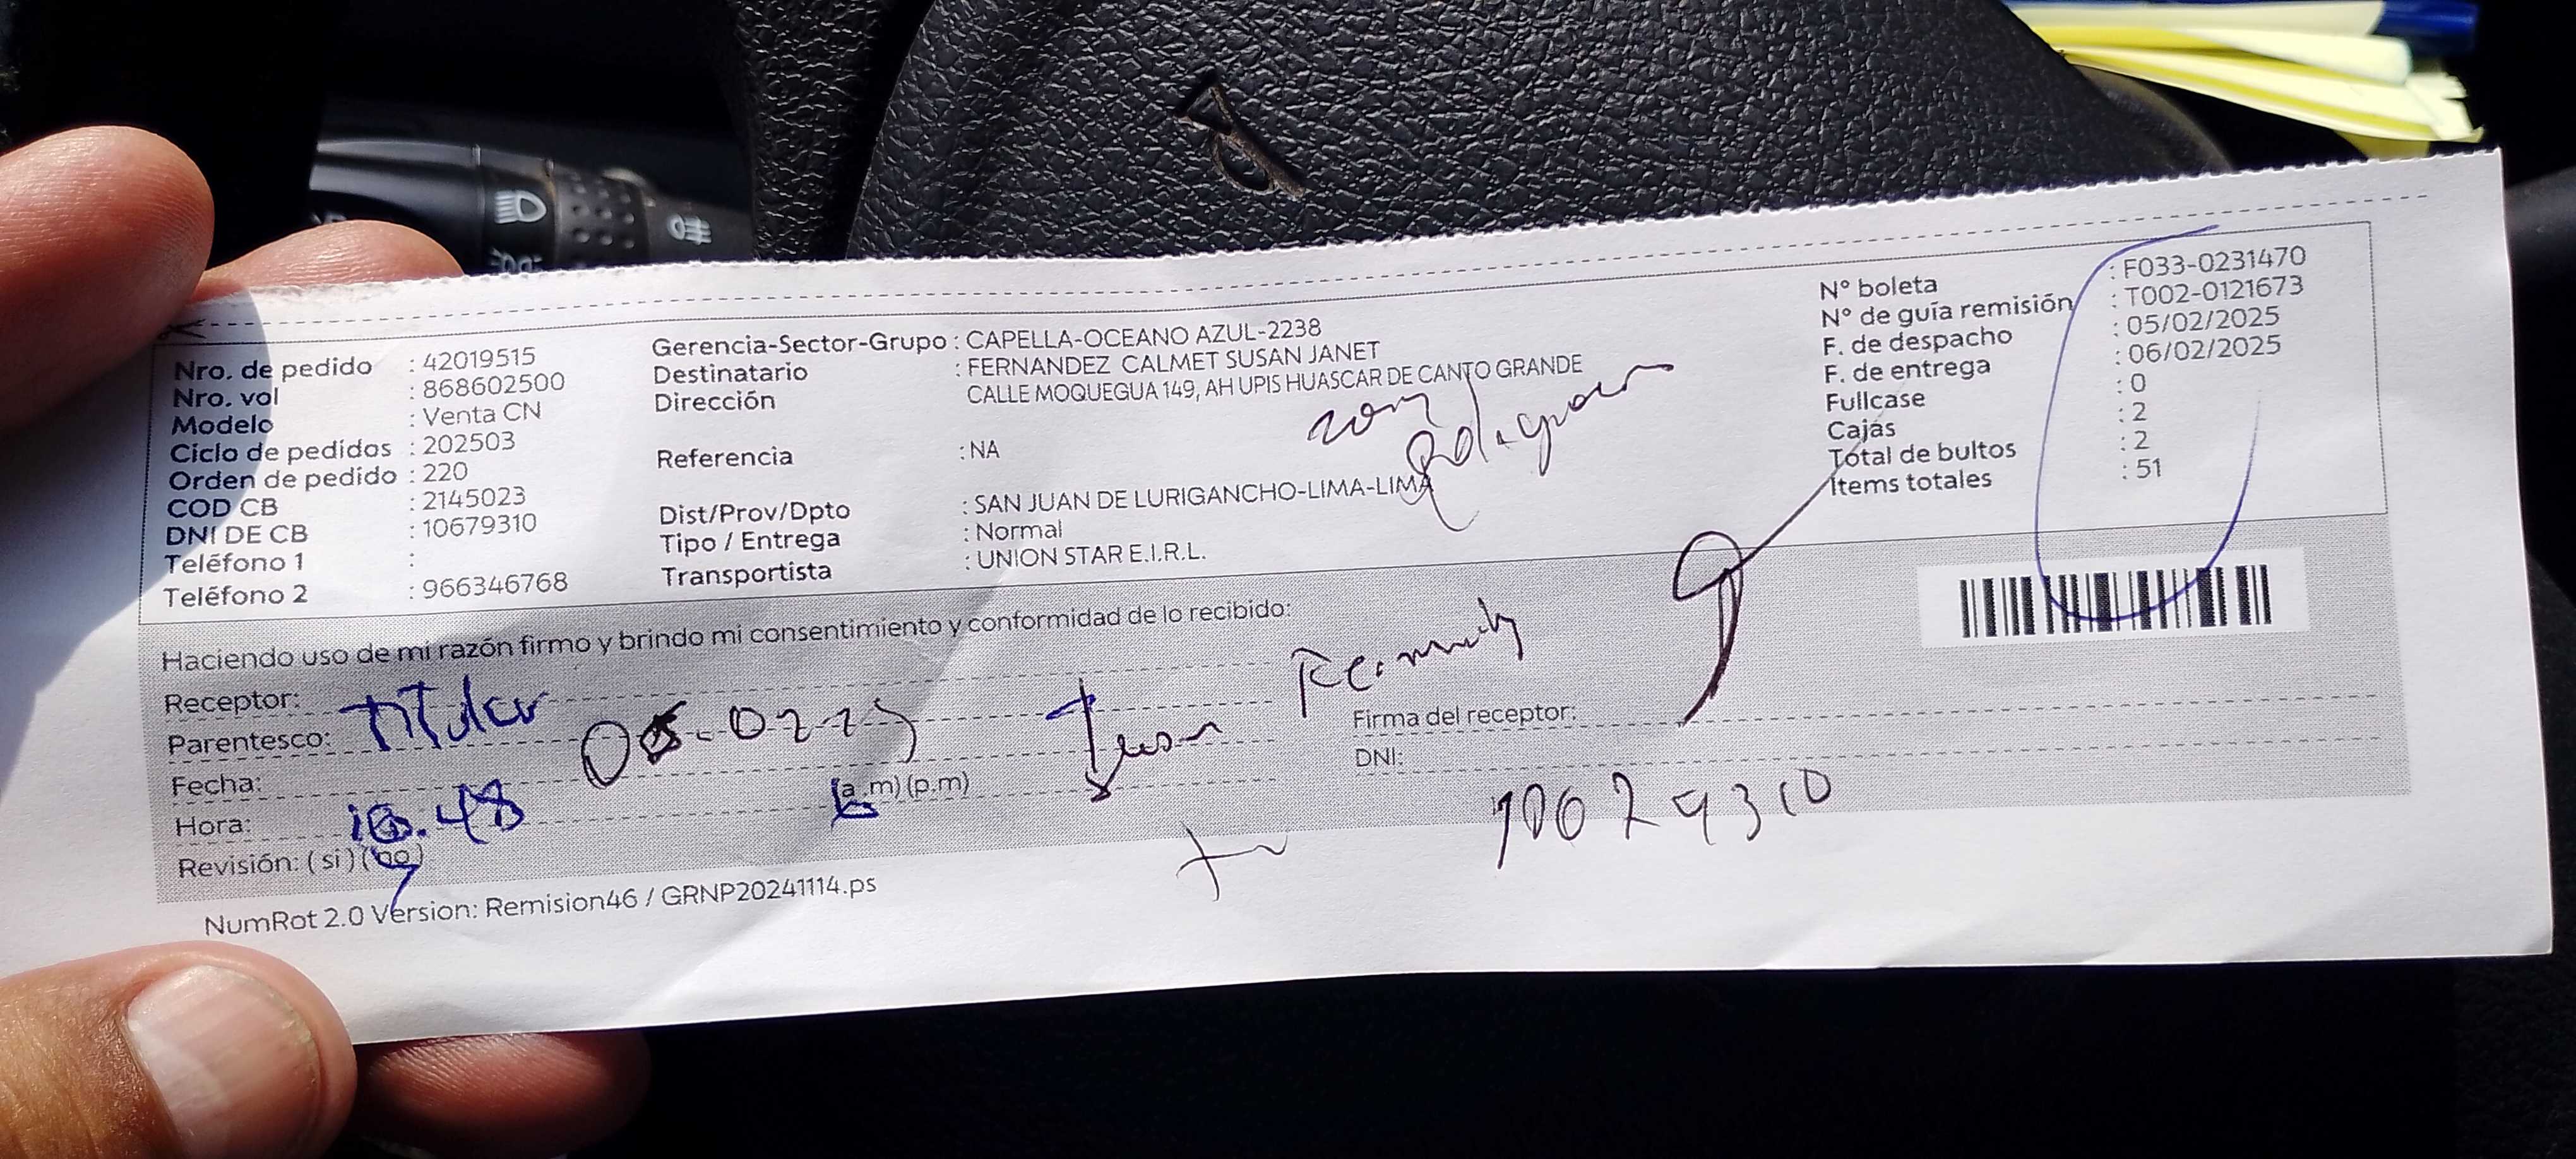 Nro. de pedido : 42019515
Nro. vol : 868602500
Modelo : Venta CN
Ciclo de pedidos : 202503
Orden de pedido : 220
COD CB : 2145023
DNI DE CB : 10679310
Teléfono 1 :
Teléfono 2 : 966346768
Gerencia-Sector-Grupo : CAPELLA-OCEANO AZUL-2238
Destinatario : FERNANDEZ CALMET SUSAN JANET
Dirección CALLE MOQUEGUA 149, AH UPIS HUASCAR DE CANTO GRANDE
Referencia : NA
Dist/Prov/Dpto : SAN JUAN DE LURIGANCHO-LIMA-LIMA
Tipo / Entrega : Normal
Transportista : UNION STAR E.I.R.L.
N° boleta : F033-0231470
N° de guía remisión : T002-0121673
F. de despacho : 05/02/2025
F. de entrega : 06/02/2025
Fullcase : 0
Cajas : 2
Total de bultos : 2
Items totales : 51
Haciendo uso de mi razón firmo y brindo mi consentimiento y conformidad de lo recibido:
Receptor:
Parentesco: Titular
Fecha:
Hora: (a.m) (p.m)
Revisión: (si) (no)
Firma del receptor:
DNI:
NumRot 2.0 Version: Remision46 / GRNP20241114.ps